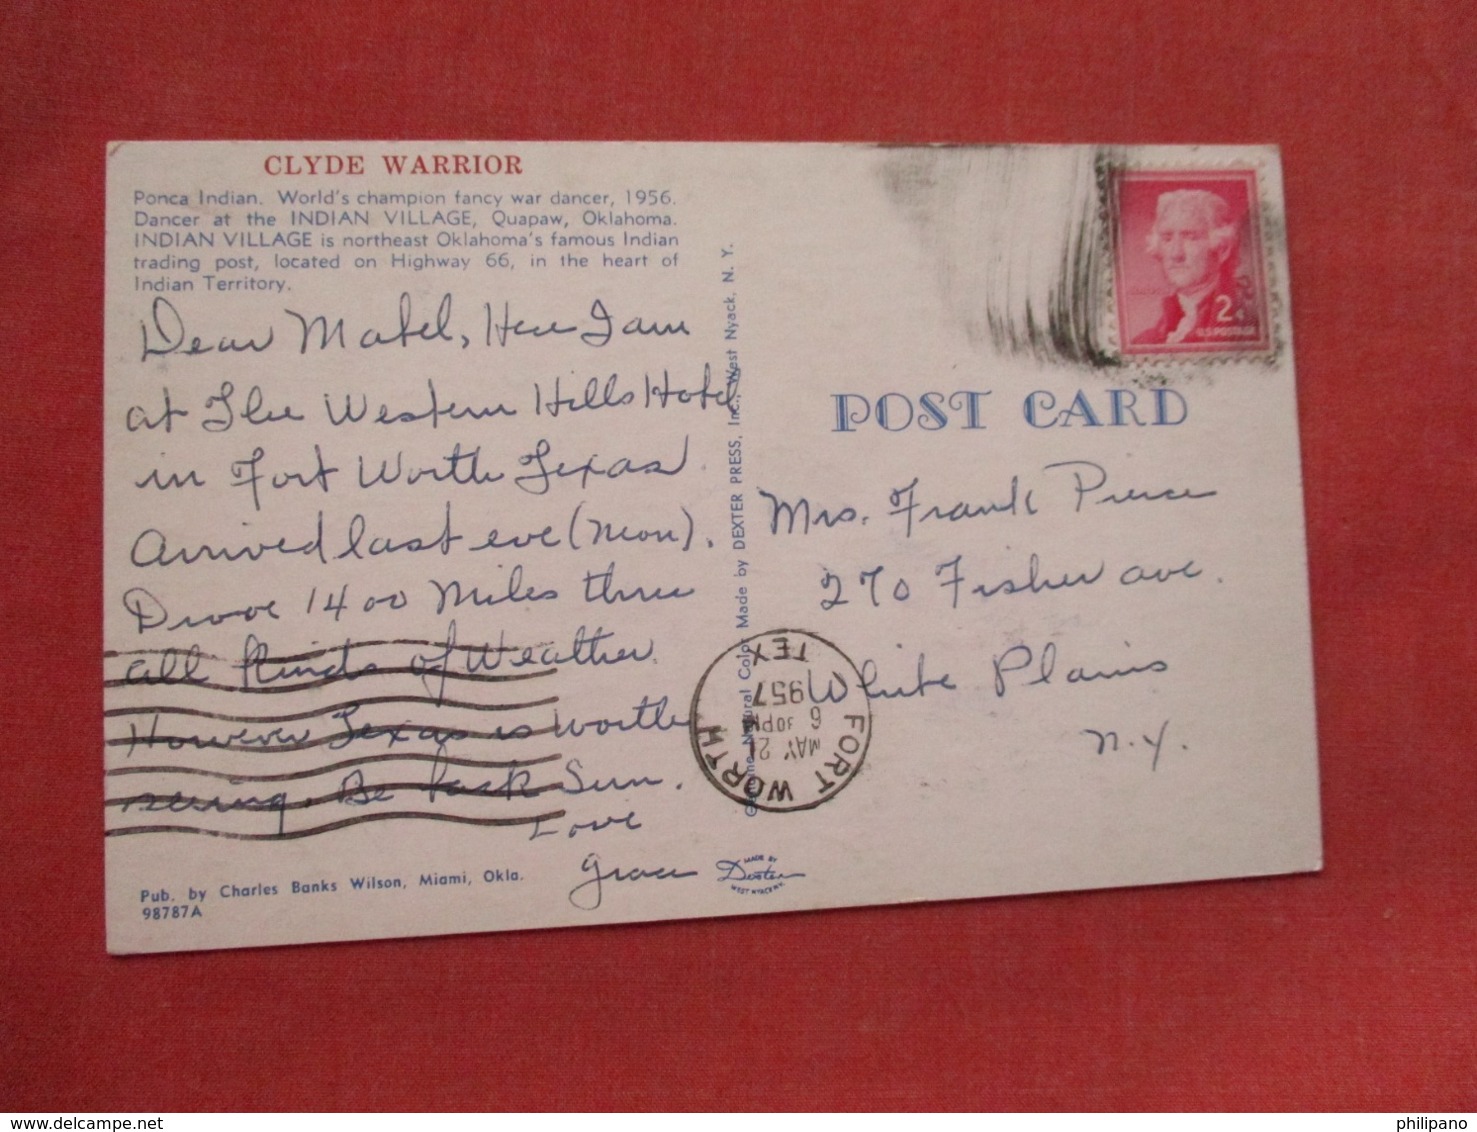 CLYDE WARRIOR
Ponca Indian. World's champion fancy war dancer, 1956.
Dancer at the INDIAN VILLAGE, Quapaw, Oklahoma.
INDIAN VILLAGE is northeast Oklahoma's famous Indian
trading post, located on Highway 66, in the heart of
Indian Territory.
Dear Mabel, Here I am
at The Western Hills Hotel
in Fort Worth Texas
Arrived last eve (Mon).
Drove 1400 Miles thru
all kinds of Weather.
However Texas is worth
seeing. Be back Sun.
Love
Grace
Pub. by Charles Banks Wilson, Miami, Okla.
98787A
Genuine Natural Color Made by DEXTER PRESS, Inc., West Nyack, N. Y.
MADE BY
Dexter
WEST NYACK N.Y.
2¢
U.S. POSTAGE
POST CARD
Mrs. Frank Pierce
270 Fisher ave.
White Plains
N.Y.
FORT WORTH
TEX
MAY 21
6 30 PM
1957
philipano